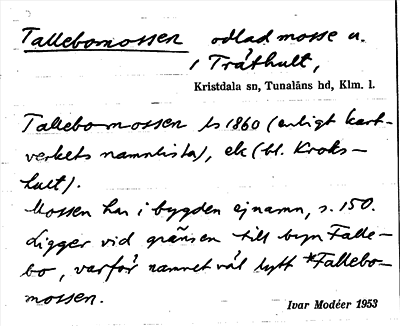 Tallebomossen odlad mosse u.
/ Tråthult,
Kristdala sn, Tunaläns hd, Klm. l.
Tallebomossen ls 1860 (enligt kart-
verkets namnlista), ek (bl. Kroks-
hult).
Mossen har i bygden ej namn, s. 150.
Ligger vid gränsen till byn Falle-
bo, varför namnet väl lytt *Fallebo-
mossen.
Ivar Modéer 1953